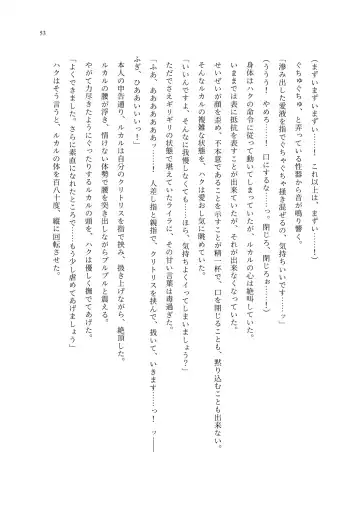 (まずいまずいまずい……！ これ以上は、まずい……！)
ぐちゅぐちゅ、と弄っている性器から音が鳴り響く。
「滲み出した愛液を指でぐちゃぐちゃ掻き混ぜるの、気持ちいいです……ッ」
(ううう！ やめろ……！ 口にするな……っ。閉じろ、閉じろぉ……！)
身体はハクの命令に従って動いてしまっていたが、ルカルの心は絶叫していた。
いままでは表に抵抗を表すことが出来ていたが、それが出来なくなっていた。
せいぜいが顔を歪め、不本意であることを示すことが精一杯で、口を閉じることも、黙り込むことも出来ない。
そんなルカルの複雑な状態を、ハクは愛おし気に眺めていた。
「いいんですよ、そんなに我慢しなくても……ほら、気持ちよくイってしまいましょう？」
ただでさえギリギリの状態で堪えていたライラに、その甘い言葉は毒過ぎた。
「ふあ、あああああああっ、人差し指と親指で、クリトリスを挟んで、扱いて、いきます……っ！ ッ――
ふぎ、ひああいいいっ！」
本人の申告通り、ルカルは自分のクリトリスを指で挟み、扱き上げながら、絶頂した。
ルカルの腰が浮き、情けない体勢で腰を突き出しながらブルブルと震える。
やがて力尽きたようにぐったりするルカルの頭を、ハクは優しく撫でてあげた。
「よくできました。さらに素直になれたところで……もう少し虐めてあげましょう」
ハクはそう言うと、ルカルの体を百八十度、縦に回転させた。
53